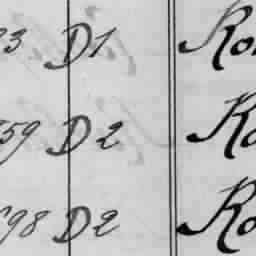 3 D1 Ro
59 D2 Ro
98 D2 Ro